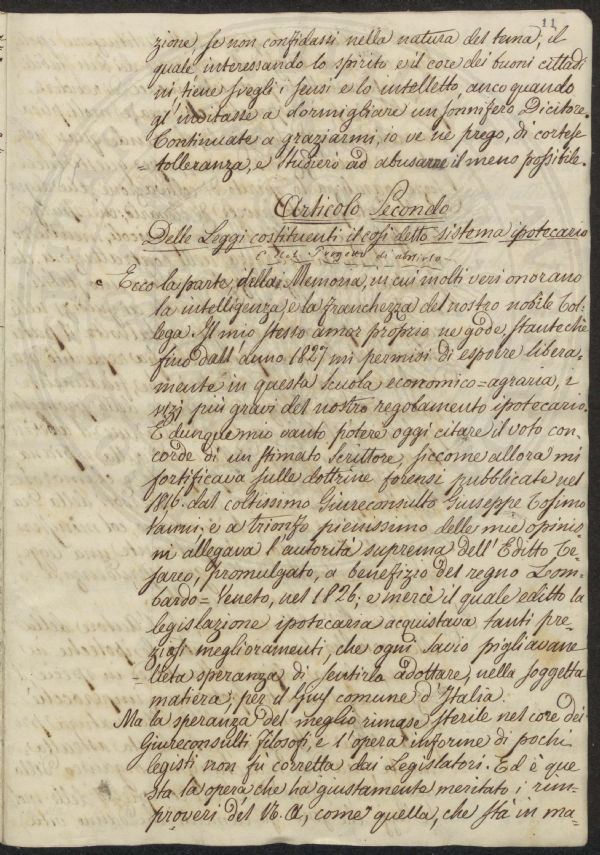 11
zione, se non confidassi nella natura del tema, il
quale interessando lo spirito e il core dei buoni cittadi
ni tiene svegli i sensi e lo intelletto, anco quando
gl'invitasse a dormigliare un sonnifero Dicitore.
Continuate a graziarmi, io ve ne prego, di cortese
= tolleranza, e studierò ad abusarne il meno possibile.
Articolo Secondo
Delle Leggi costituenti il così detto sistema ipotecario
e del Progetto di
Ecco la parte della Memoria, in cui molti veri onorano
la intelligenza e la franchezza del nostro nobile Col-
lega. Il mio stesso amor proprio ne gode, stanteche
fino dall'anno 1827 mi permisi di esporre libera-
mente in questa Scuola economico=agraria, i
vizj più gravi del nostro regolamento ipotecario.
È dunque mio vanto potere oggi citare il voto con-
corde di un stimato Scrittore, siccome allora mi
fortificava sulle dottrine forensi pubblicate nel
1816 dal coltissimo Giureconsulto Giuseppe Cosimo
Vanni: e a trionfo pienissimo delle mie opinio-
ni allegava l'autorità suprema dell'Editto Ce-
sareo, promulgato, a benefizio del regno Lom-
bardo=Veneto, nel 1826; e mercè il quale editto la
legislazione ipotecaria acquistava tanti pre-
ziosi meglioramenti, che ogni savio pigliavane
= lieta speranza di sentirlo adottare, nella soggetta
materia, per il Gius comune d'Italia.
Ma la speranza del meglio rimase sterile nel core dei
Giureconsulti filosofi, e l'opera informe di pochi
legisti non fù corretta dai Legislatori. Ed è que
sta la opera che ha giustamente meritato i rim-
proveri del come quella, che stà in ma-